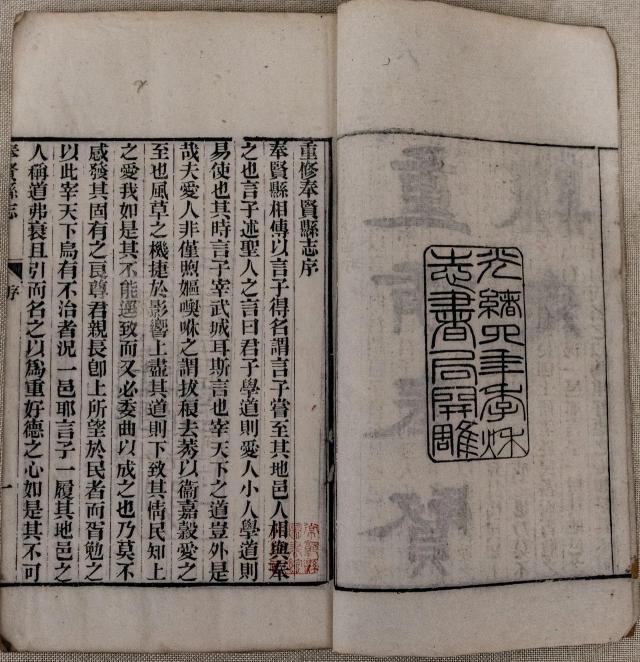 光緒四年季秋
志書局開雕
重修奉賢縣志序
奉賢縣相傳以言子得名謂言子嘗至其地邑人相與奉
之也言子述聖人之言曰君子學道則愛人小人學道則
易使也其時言子宰武城耳斯言也宰天下之道豈外是
哉夫愛人非僅煦嫗噢咻之謂拔稂去莠以衞嘉穀愛之
至也風草之機捷於影響上盡其道則下致其情民知上
之愛我如是其不能遽致而又必委曲以成之也乃莫不
感發其固有之良尊君親長卽上所望於民者而胥勉之
以此宰天下烏有不治者況一邑耶言子一履其地邑之
人稱道弗衰且引而名之以爲重好德之心如是其不可
奉賢縣志 序 一